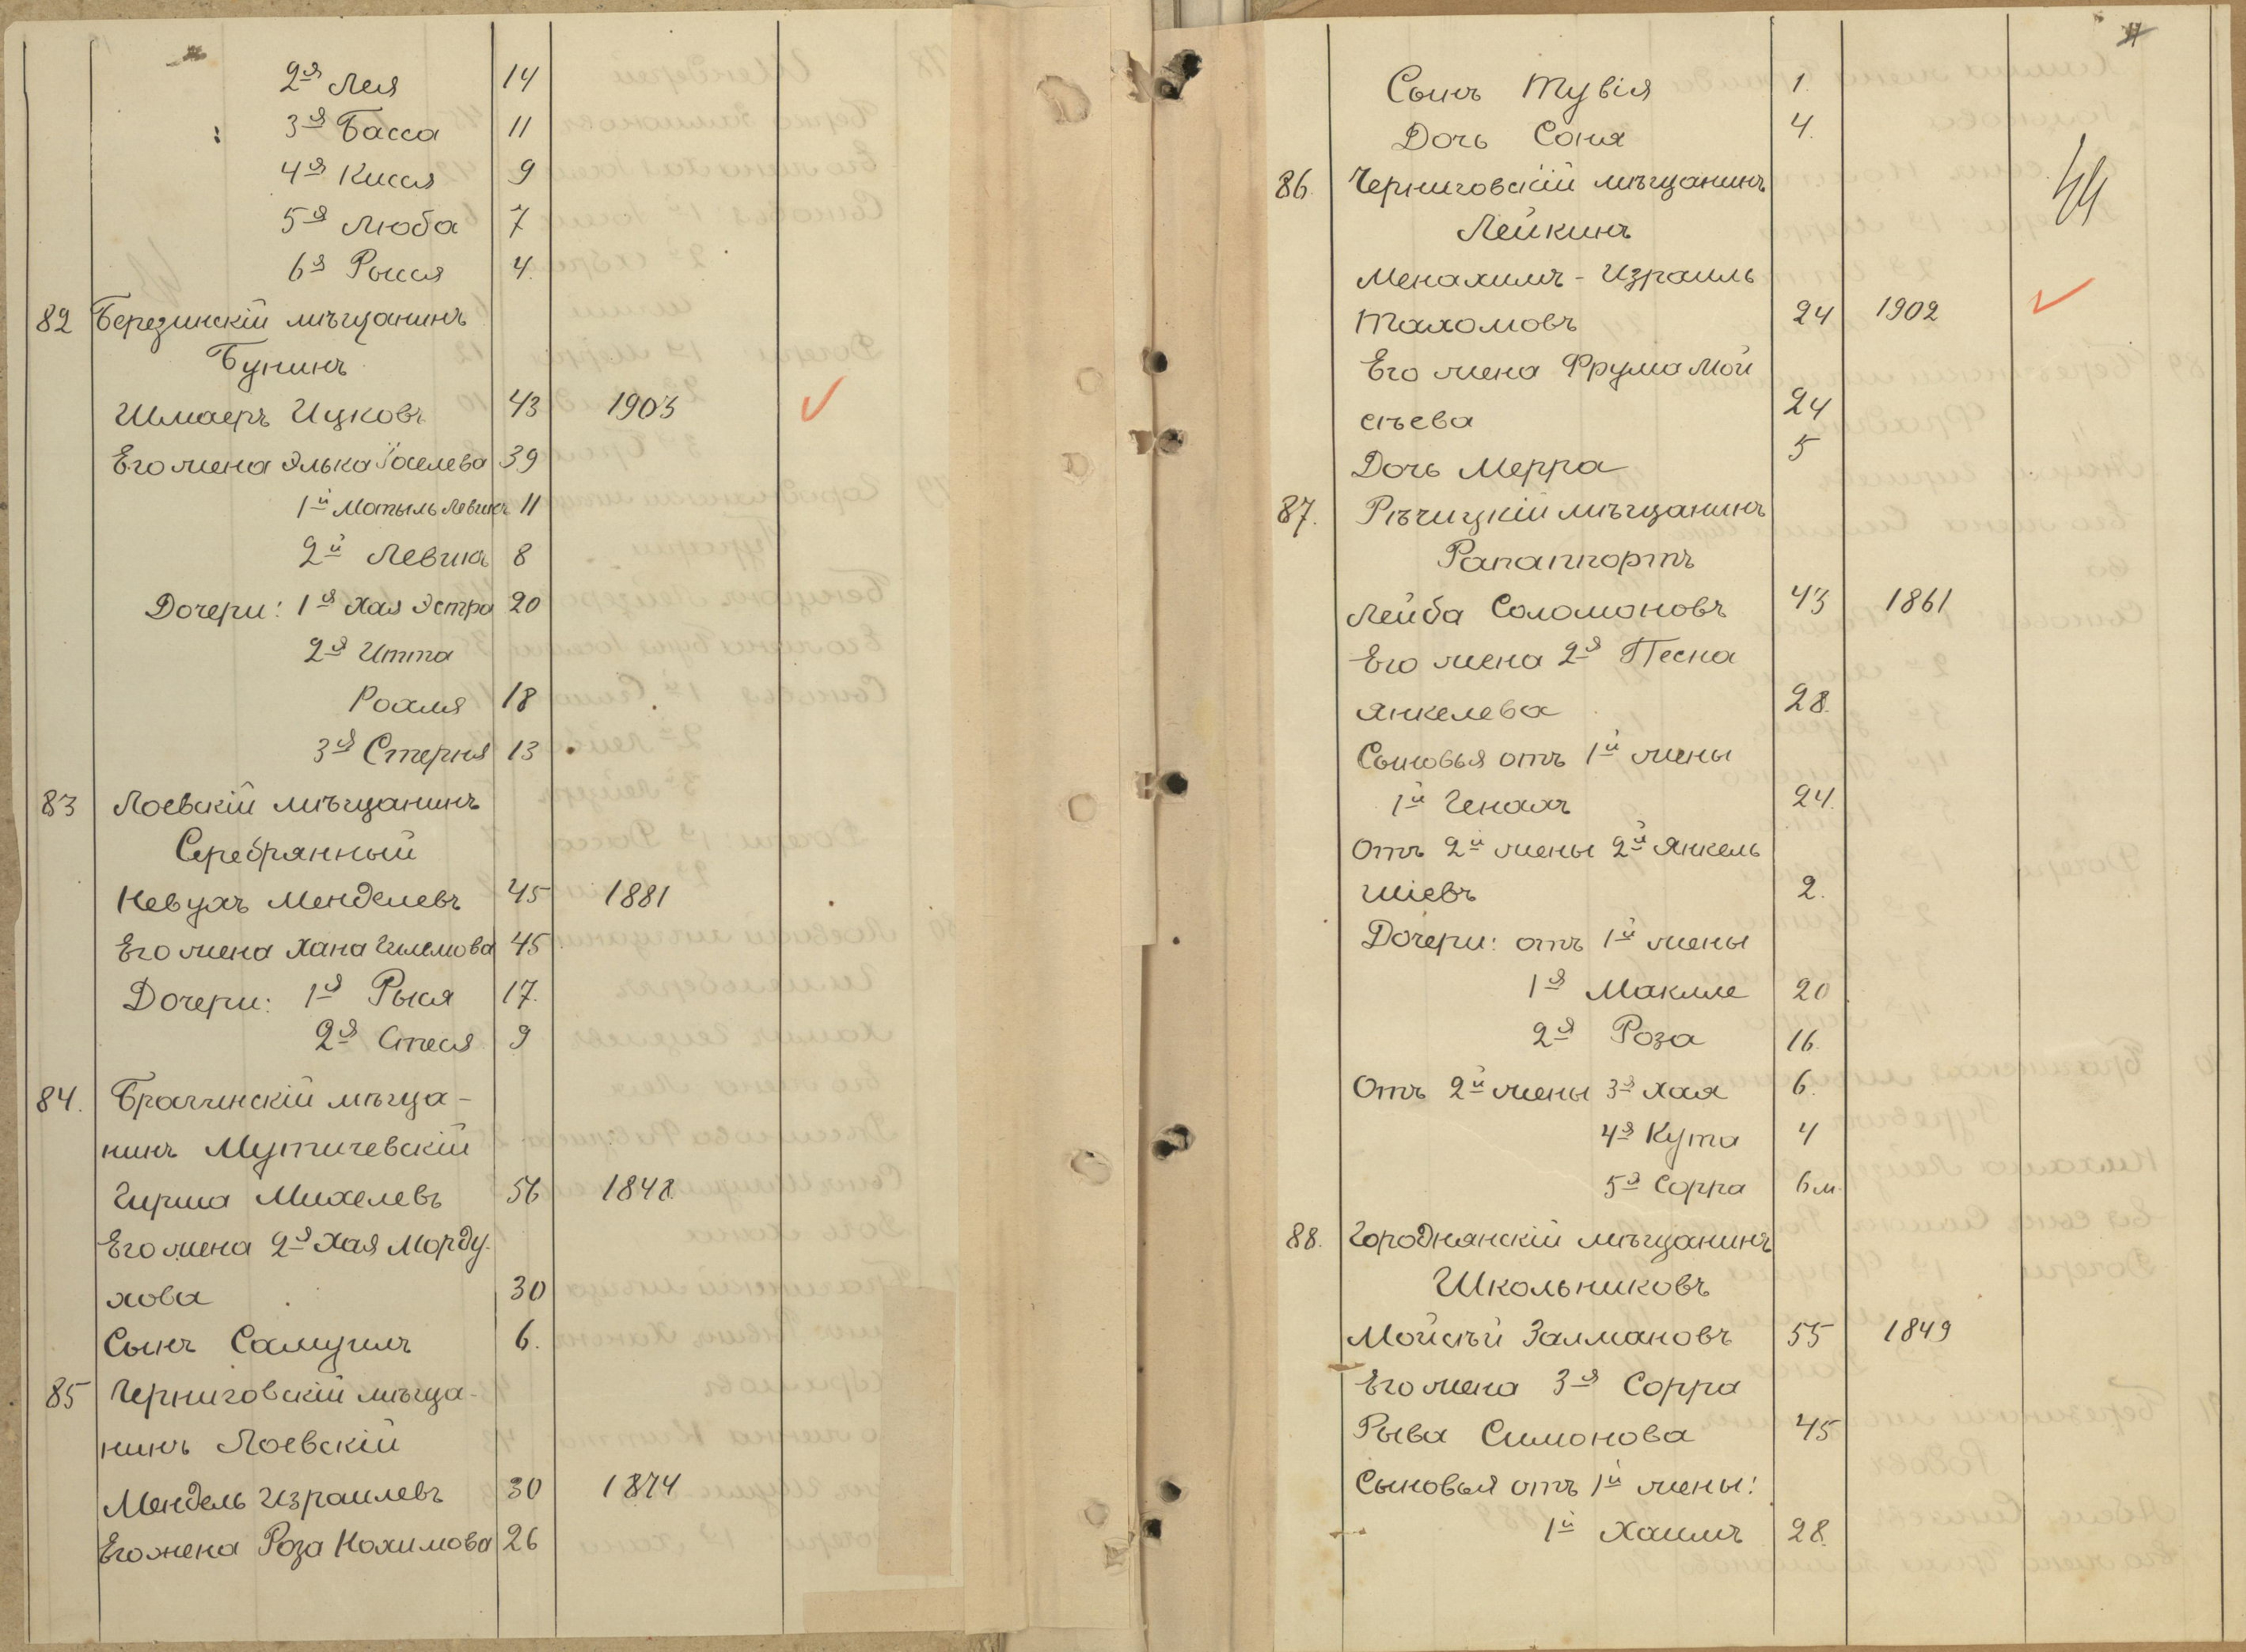 2я Лея 14
3я Басса 11
4я Кися 9
5я Люба 7
6я Рыся 4.
82 Березинскій мѣщанинъ
Бунинъ
Шмаеръ Ицковъ 43 1903
Его жена Элька Іоселева 39
1й Мотыль Левикъ 11
2й Левикъ 8
Дочери: 1я Хая Эстра 20
2я Итта
Рохля 18
3я Стерня 13
83 Лоевскій мѣщанинъ
Серебрянный
Невухъ Менделевъ 45 1881
Его жена Хана Гилемова 45
Дочери: 1я Рыся 17.
2я Стеся 9
84. Брагинскій мѣща-
нинъ Мутичевскій
Гирша Михелевъ 56 1848
Его жена 2я Хая Морду-
хова 30
Сынъ Самуилъ 6.
85 Черниговскій мѣща-
нинъ Лоевскій
Мендель Израилевъ 30 1874
Его жена Роза Нохимова 26
Сынъ Тувія 1.
Дочь Соня 4.
86. Черниговскій мѣщанинъ
44
Лейкинъ
Менахимъ-Израиль
Тахомовъ 24 1902
Его жена Фрума Мои
сѣева 24
Дочь Мерра 5
87. Рѣчицкій мѣщанинъ
Рапаппортъ
Лейба Соломоновъ 43 1861
Его жена 2я Песна
Янкелева 28.
Сыновья отъ 1й жены
1й Генахъ 24.
Отъ 2й жены 2й Янкель
Шіевъ 2.
Дочери: отъ 1й жены
1я Макмле 20
2я Роза 16.
Отъ 2й жены 3я Хая 6.
4я Кута 4
5я Сорра 6 м.
88. Городнянскій мѣщанинъ
Школьниковъ
Мойсѣй Залмановъ 55 1849
Его жена 3я Сорра
Рыва Симонова 45
Сыновья отъ 1й жены:
1й Хаимъ 28.